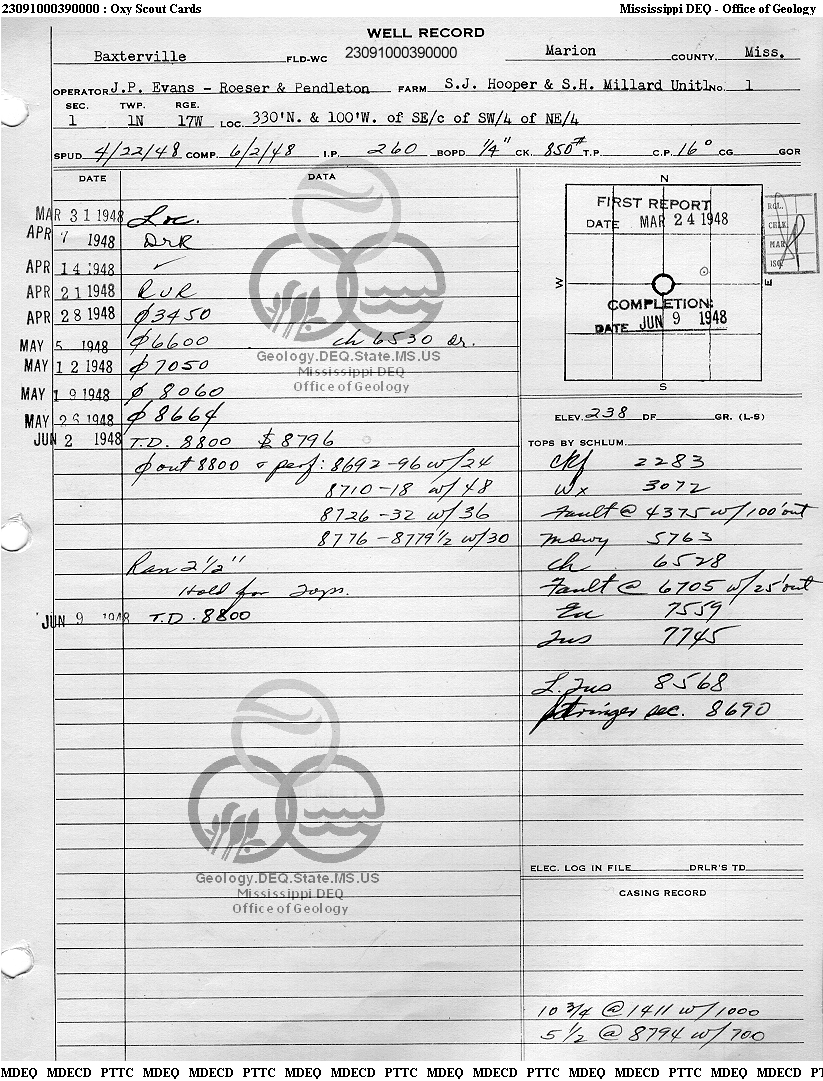 23091000390000 : Oxy Scout Cards Mississippi DEQ - Office of Geology
WELL RECORD
Baxterville FLD-WC 23091000390000 Marion COUNTY, Miss.
OPERATOR J.P. Evans - Roeser & Pendleton FARM S.J. Hooper & S.H. Millard Unit1 No. 1
SEC. TWP. RGE.
1 1N 17W LOC. 330'N. & 100'W. of SE/c of SW/4 of NE/4
SPUD 4/22/48 COMP. 6/2/48 I.P. 260 BOPD 1/4" CK. 850# T.P. C.P. 16° CG GOR
DATE DATA
MAR 31 1948 Loc.
APR 7 1948 DrR
APR 14 1948 ✓
APR 21 1948 RUR
APR 28 1948 Ø 3450
MAY 5 1948 Ø 6600 ch 6530 dr.
MAY 12 1948 Ø 7050
MAY 19 1948 Ø 8060
MAY 26 1948 Ø 8664
JUN 2 1948 T.D. 8800 8796
Ø out 8800 perf: 8692-96 w/24
8710-18 w/48
8726-32 w/36
8776-8779½ w/30
Ran 2½"
Hold for Tops.
JUN 9 1948 T.D. 8800
N
FIRST REPORT
DATE MAR 24 1948
W E
COMPLETION:
DATE JUN 9 1948
S
RGL.
CHLK.
MAR.
ISO.
ELEV. 238 DF GR. (L-S)
TOPS BY SCHLUM.
Ckf 2283
Wx 3072
Fault @ 4375 w/100' out
Mowy 5763
Ch 6528
Fault @ 6705 w/25' out
Eu 7559
Tus 7745
L. Tus 8568
Stringer sec. 8690
ELEC. LOG IN FILE DRLR'S TD
CASING RECORD
10 3/4 @ 1411 w/1000
5 1/2 @ 8794 w/700
Geology.DEQ.State.MS.US
Mississippi DEQ
Office of Geology
Geology.DEQ.State.MS.US
Mississippi DEQ
Office of Geology
MDEQ MDECD PTTC MDEQ MDECD PTTC MDEQ MDECD PTTC MDEQ MDECD PTTC MDEQ MDECD PTTC MDEQ MDECD PT